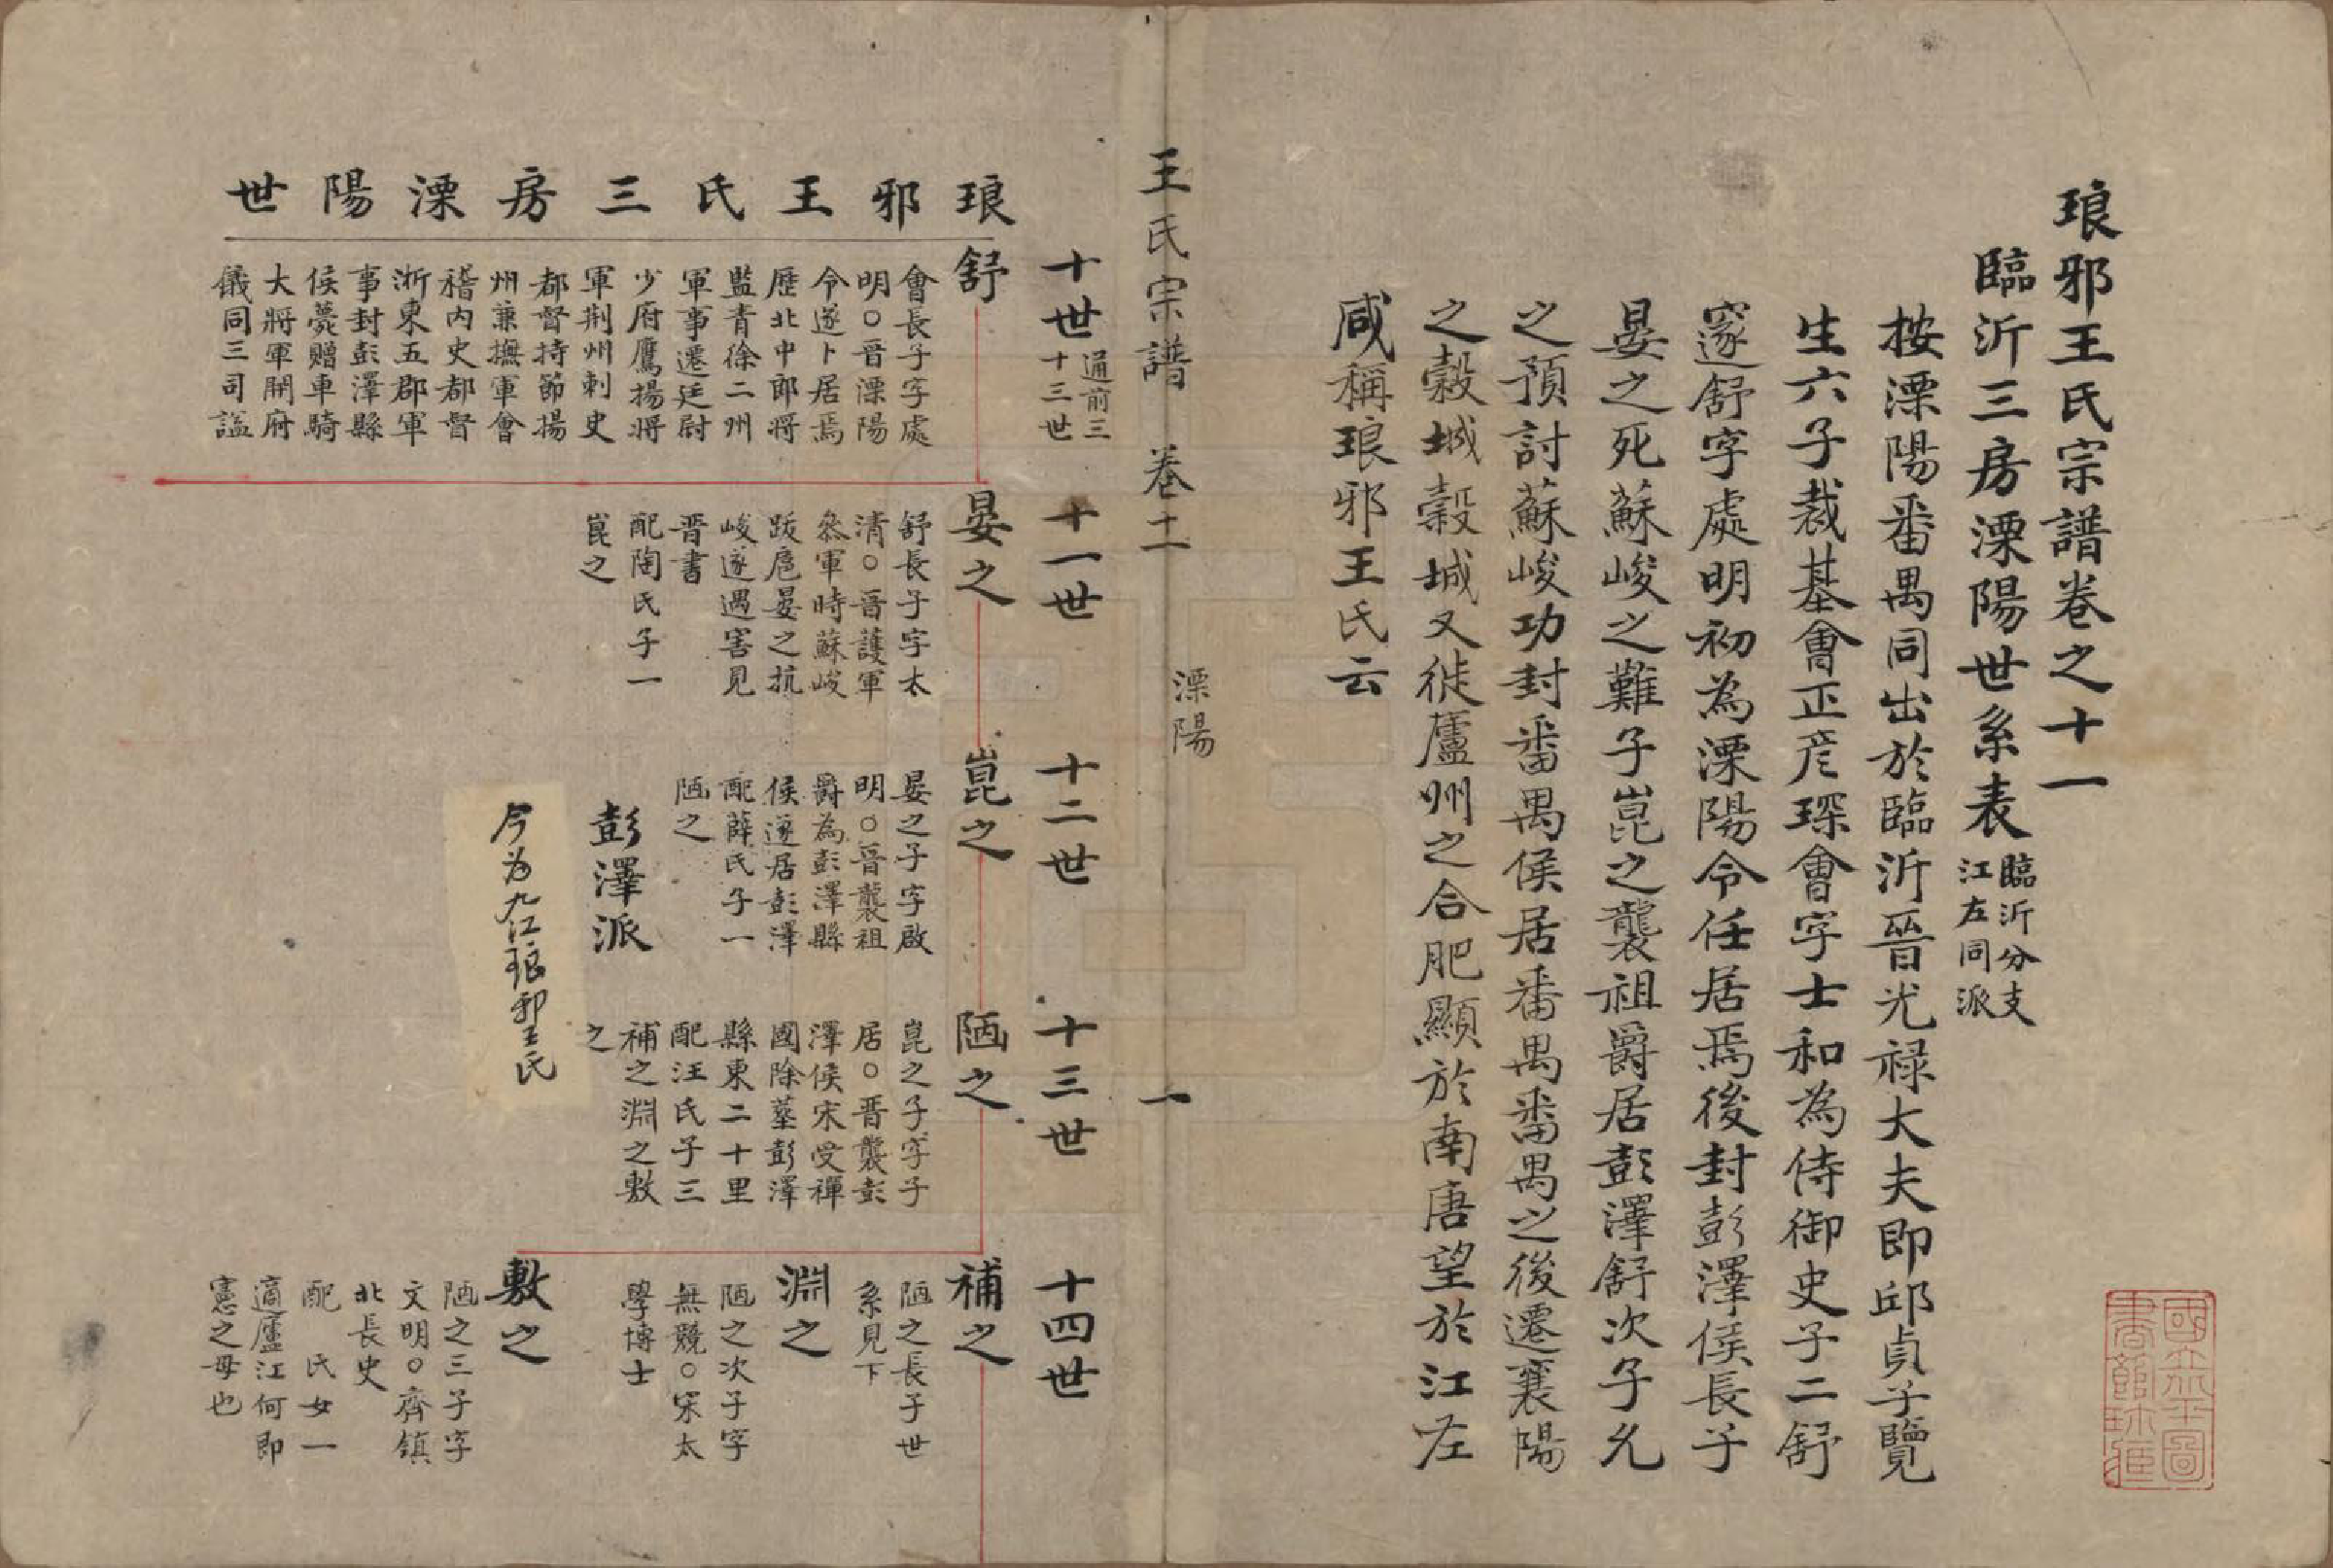 琅邪王氏宗譜卷之十一
臨沂三房溧陽世系表
臨沂分支
江左同派
按溧陽番禺同出於臨沂晉光祿大夫即邱貞子覽
生六子裁基會正彦琛會字士和為侍御史子二舒
邃舒字處明初為溧陽令任居焉後封彭澤侯長子
晏之死蘇峻之難子崑之襲祖爵居彭澤舒次子允
之預討蘇峻功封番禺侯居番禺番禺之後遷襄陽
之穀城穀城又徙廬州之合肥顯於南唐望於江左
咸稱琅邪王氏云
王氏宗譜 卷十一 溧陽 一
十世
通前三
十三世
十一世
十二世
十三世
十四世
琅邪王氏三房溧陽世
舒
會長子字處
明○晋溧陽
令遂卜居焉
歷北中郎將
監青徐二州
軍事遷廷尉
少府鷹揚將
軍荆州刺史
都督持節揚
州兼撫軍會
稽内史都督
浙東五郡軍
事封彭澤縣
侯薨赠車騎
大將軍開府
儀同三司諡
晏之
舒長子字太
清○晋護軍
叅軍時蘇峻
跋扈晏之抗
峻遂遇害見
晋書
配陶氏子一
崑之
崑之
晏之子字啟
明○晋襲祖
爵為彭澤縣
侯遂居彭澤
配薛氏子一
陋之
彭澤派
今为九江琅邪王氏
陋之
崑之子字子
居○晋襲彭
澤侯宋受禪
國除墓彭澤
縣東二十里
配汪氏子三
補之淵之敷
之
補之
陋之長子世
系見下
淵之
陋之次子字
無競○宋太
學博士
敷之
陋之三子字
文明○齊鎮
北長史
配 氏女一
適廬江何即
憲之母也
國立北平圖
書館珍藏